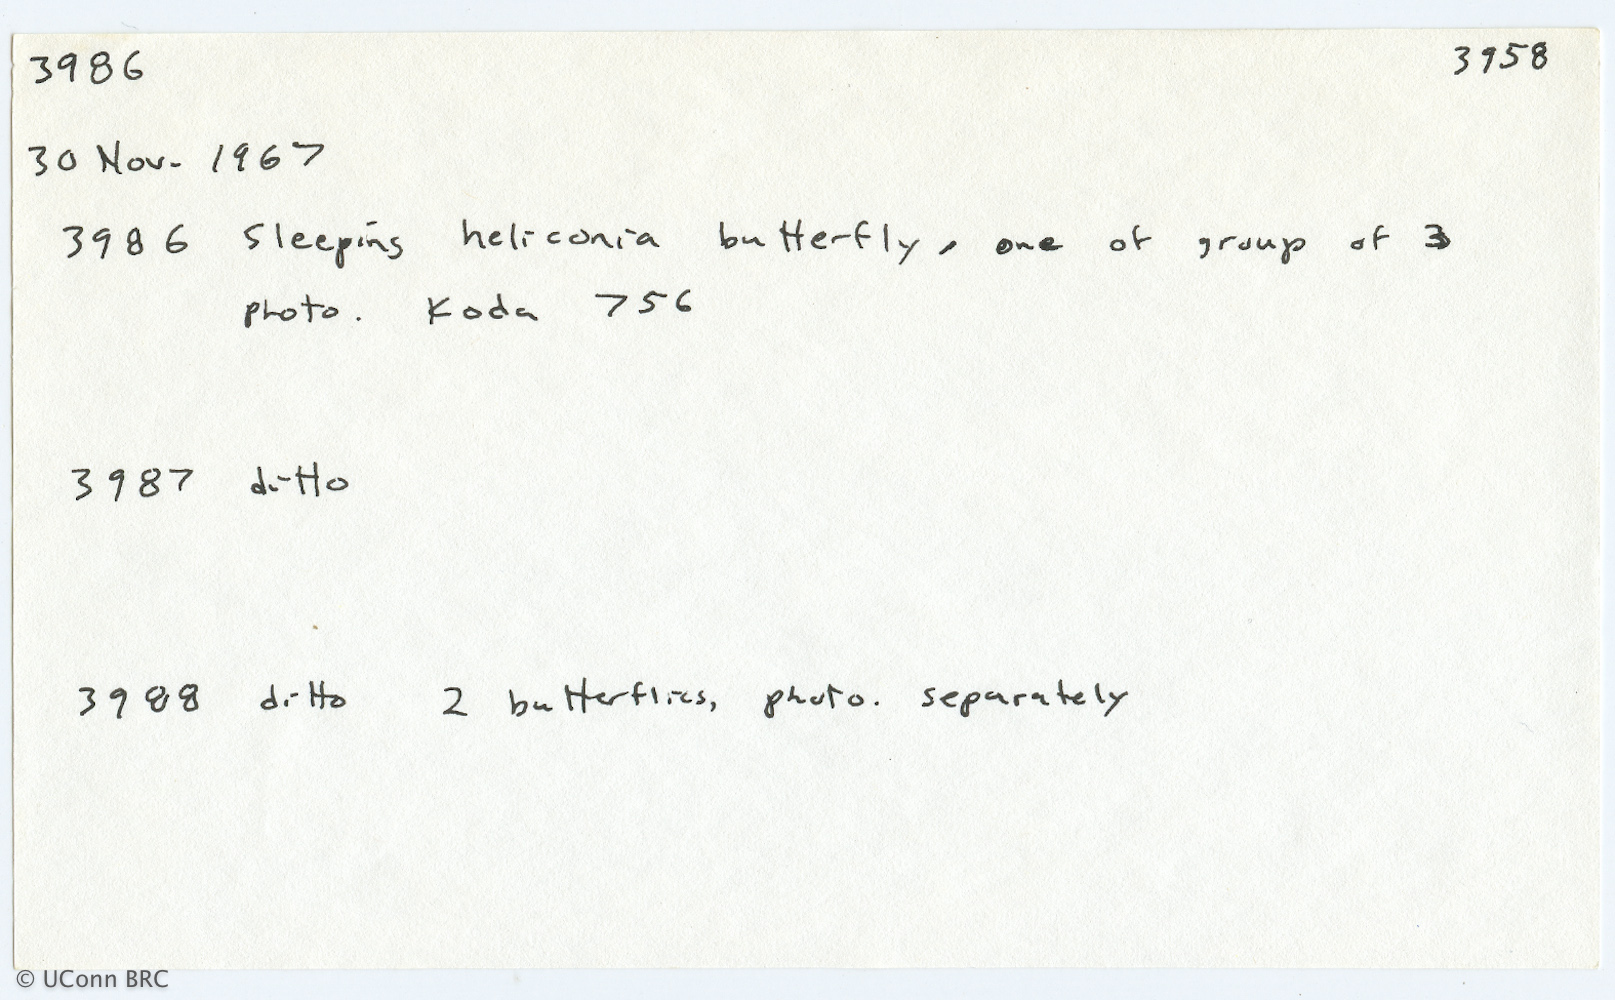 3986
3958
30 Nov. 1967
3986 Sleeping heliconia butterfly, one of group of 3
photo. Koda 756
3987 ditto
3988 ditto 2 butterflies, photo. separately
© UConn BRC